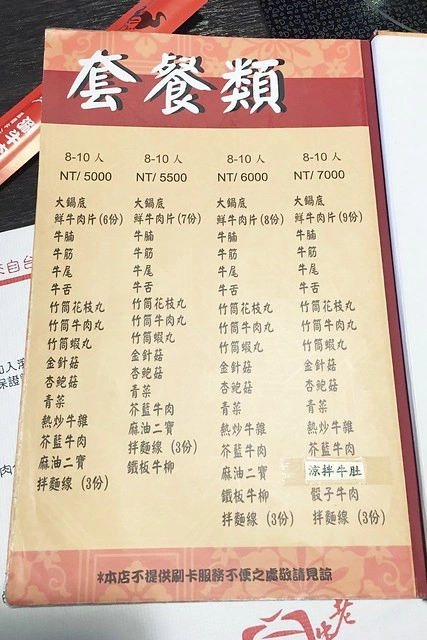 套餐類
8-10 人
NT/ 5000
大鍋底
鮮牛肉片(6份)
牛腩
牛筋
牛尾
牛舌
竹筒花枝丸
竹筒牛肉丸
竹筒蝦丸
金針菇
杏鮑菇
青菜
熱炒牛雜
芥藍牛肉
麻油二寶
拌麵線 (3份)
8-10 人
NT/ 5500
大鍋底
鮮牛肉片(7份)
牛腩
牛筋
牛尾
牛舌
竹筒花枝丸
竹筒牛肉丸
竹筒蝦丸
金針菇
杏鮑菇
青菜
芥藍牛肉
麻油二寶
拌麵線 (3份)
鐵板牛柳
8-10 人
NT/ 6000
大鍋底
鮮牛肉片(8份)
牛腩
牛筋
牛尾
牛舌
竹筒花枝丸
竹筒牛肉丸
竹筒蝦丸
金針菇
杏鮑菇
青菜
熱炒牛雜
芥藍牛肉
麻油二寶
鐵板牛柳
拌麵線 (3份)
8-10 人
NT/ 7000
大鍋底
鮮牛肉片(9份)
牛腩
牛筋
牛尾
牛舌
竹筒花枝丸
竹筒牛肉丸
竹筒蝦丸
金針菇
杏鮑菇
青菜
熱炒牛雜
芥藍牛肉
涼拌牛肚
骰子牛肉
拌麵線 (3份)
*本店不提供刷卡服務不便之處敬請見諒
來自台
加入
保證
肉
老